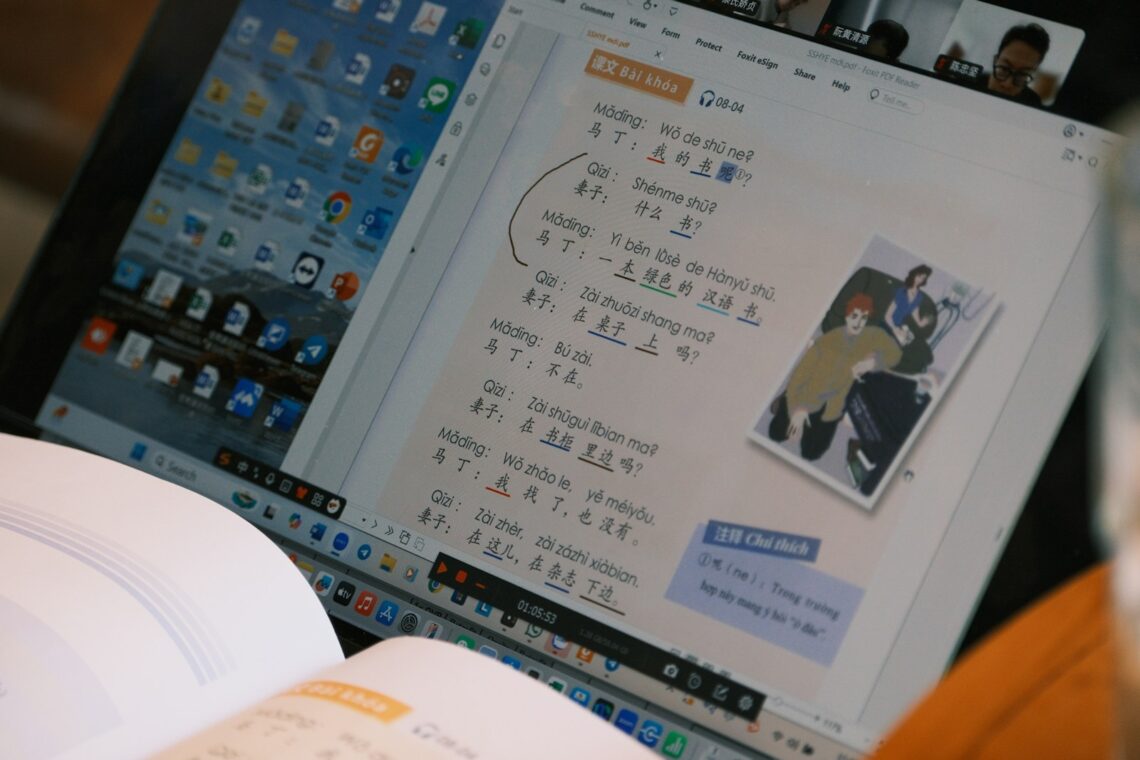 阮黄清源
陈忠坚
Start
Comment
View
Form
Protect
Foxit eSign
Share
Help
Tell me...
SSHYE mới.pdf - Foxit PDF Reader
SSHYE mới.pdf
课文 Bài khóa
08-04
Mǎdīng: Wǒ de shū ne?
马丁：我的书呢①?
Qīzi: Shénme shū?
妻子：什么书?
Mǎdīng: Yì běn lǜsè de Hànyǔ shū.
马丁：一本绿色的汉语书。
Qīzi: Zài zhuōzi shang ma?
妻子：在桌子上吗?
Mǎdīng: Bú zài.
马丁：不在。
Qīzi: Zài shūguì lǐbian ma?
妻子：在书柜里边吗?
Mǎdīng: Wǒ zhǎo le, yě méiyǒu.
马丁：我找了，也没有。
Qīzi: Zài zhèr, zài zázhì xiàbian.
妻子：在这儿，在杂志下边。
注释 Chú thích
①呢 (ne): Trong trường
hợp này mang ý hỏi "ở đâu"
Search
01:05:53
Bài khóa
08-04
Mǎdīng: